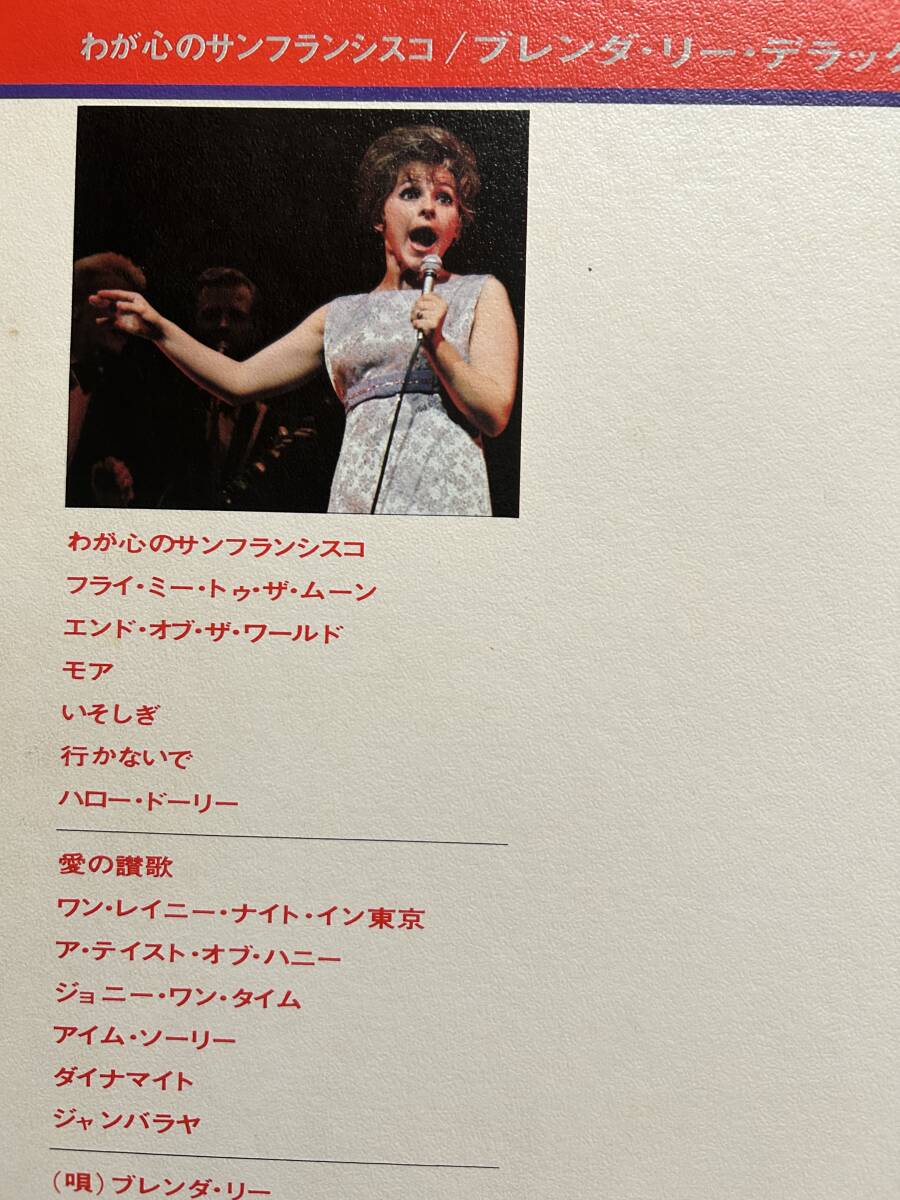 わが心のサンフランシスコ/ブレンダ・リー・デラック
わが心のサンフランシスコ
フライ・ミー・トゥ・ザ・ムーン
エンド・オブ・ザ・ワールド
モア
いそしぎ
行かないで
ハロー・ドーリー
愛の讃歌
ワン・レイニー・ナイト・イン東京
ア・テイスト・オブ・ハニー
ジョニー・ワン・タイム
アイム・ソーリー
ダイナマイト
ジャンバラヤ
(唄)ブレンダ・リー